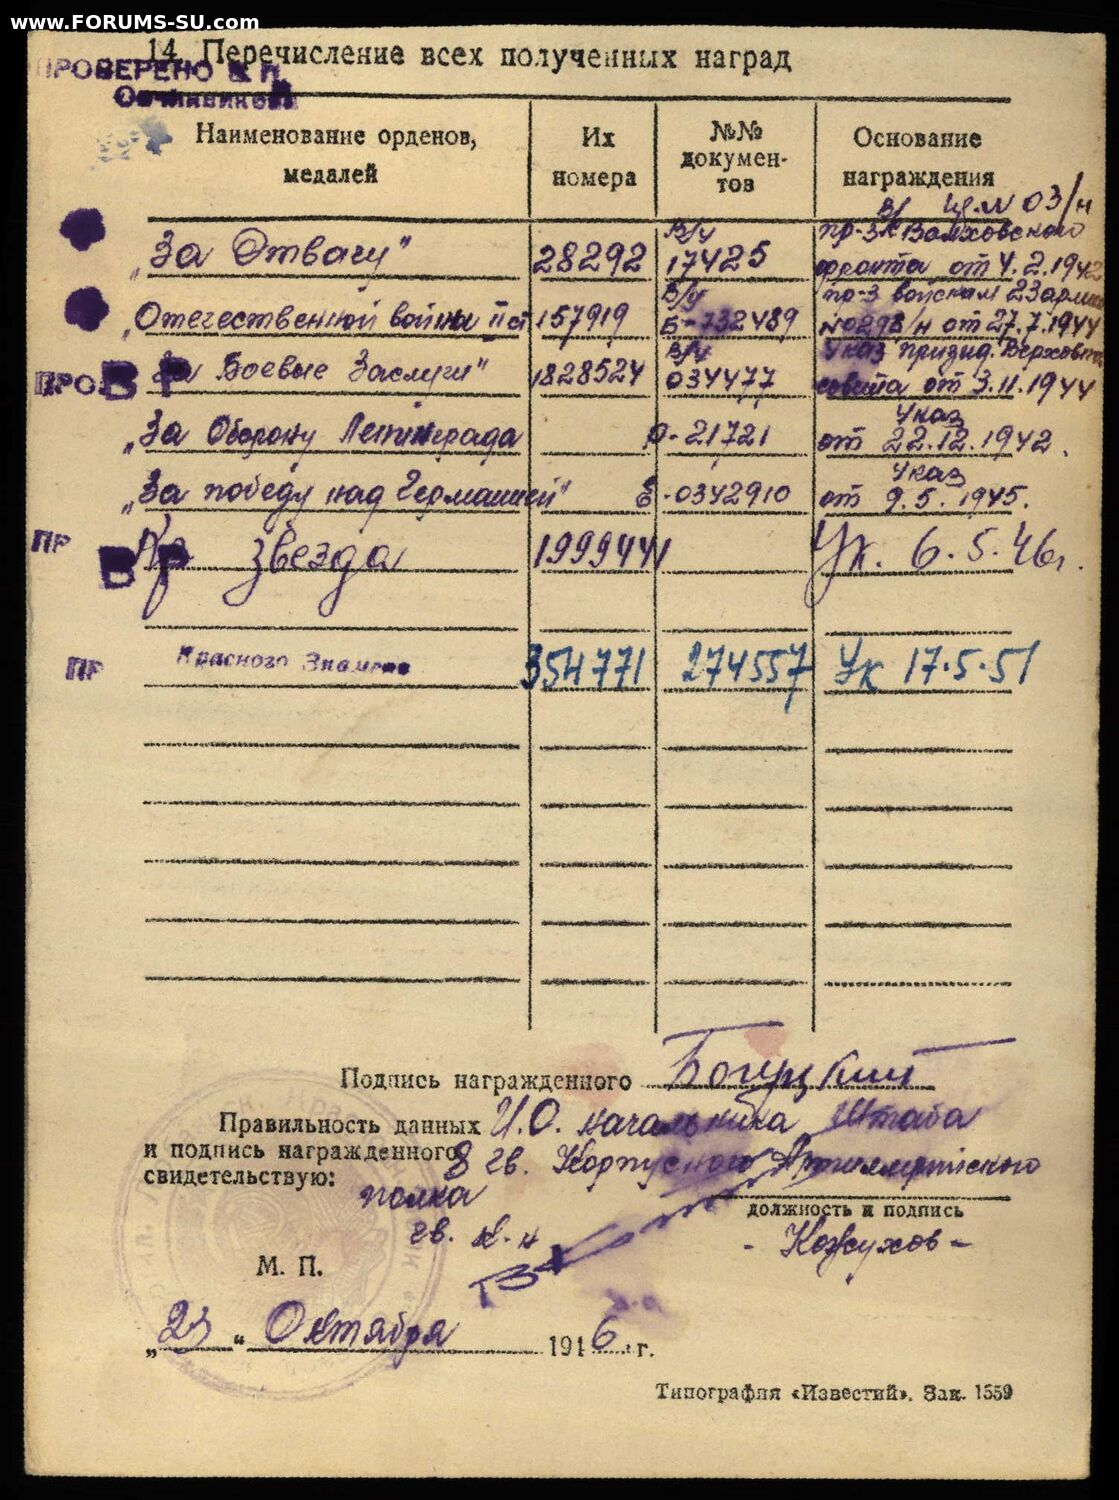 www.FORUMS-SU.com
14. Перечисление всех полученных наград
ПРОВЕРЕНО
Наименование орденов, медалей
Их номера
№№ докумен-
тов
Основание награждения
„За Отвагу" 28292 В/у 17425 03/н пр-з Волховского фронта от 4.2.1942
„Отечественной войны II ст 157919 В/у Б-732489 пр-з войскам 23 арми №0298/н от 27.7.1944
„За Боевые Заслуги" 1828524 В/у 034477 Указ Призид. Верховн совета от 3.11.1944
„За Оборону Ленинграда 21721 Указ от 22.12.1942.
„За победу над Германией" 0342910 Указ от 9.5.1945.
ПР Кр звезда 1999441 Ук. 6.5.46г.
ПР Красного Знамени 354771 274557 Ук 17.5.51
Подпись награжденного Богуцкий
Правильность данных И.О. начальника Штаба
и подпись награжденного 8 гв. Корпусного Артиллерийского
свидетельствую: полка
должность и подпись
гв. к-н
- Кожухов -
М. П.
„23" Октября 1946 г.
Типография «Известий». Зак. 1559